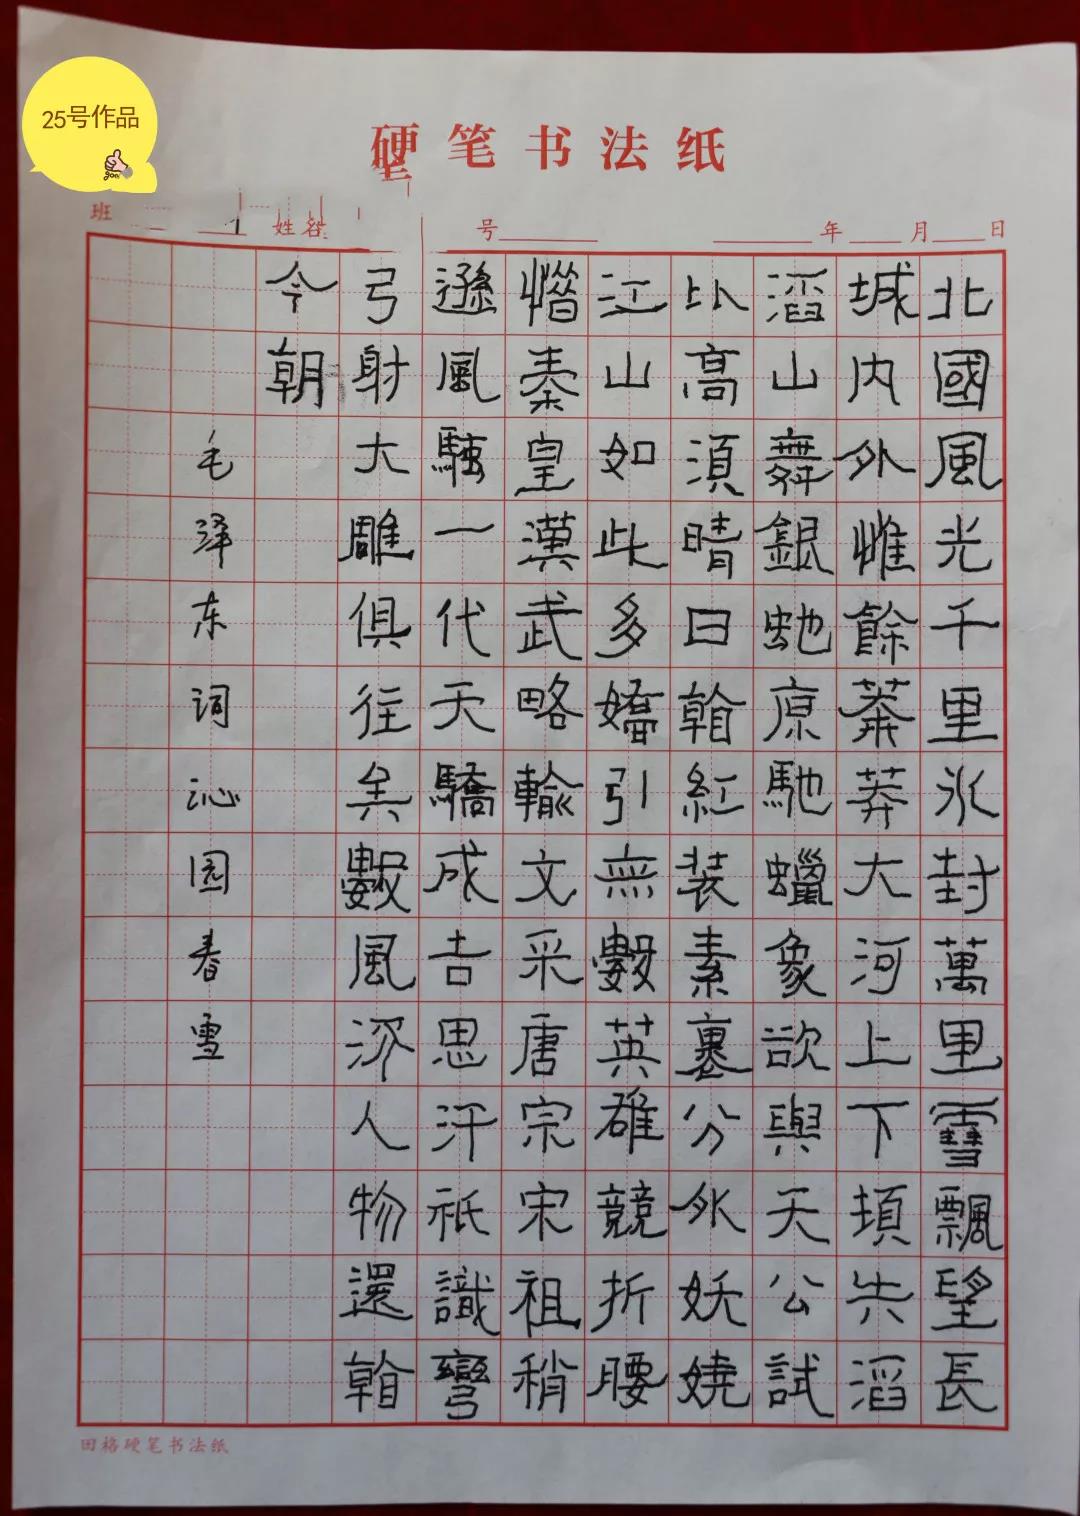 25号作品
硬笔书法纸
班 姓名 号 年 月 日
北國風光千里氷封萬里雪飄望長
城内外惟餘莽莽大河上下頓失滔
滔山舞銀蛇原馳蠟象欲與天公試
比高須晴日看紅装素裹分外妖嬈
江山如此多嬌引無數英雄競折腰
惜秦皇漢武略輸文采唐宗宋祖稍
遜風騷一代天驕成吉思汗祇識彎
弓射大雕俱往矣數風流人物還看
今朝
毛泽东词沁园春雪
田格硬笔书法纸